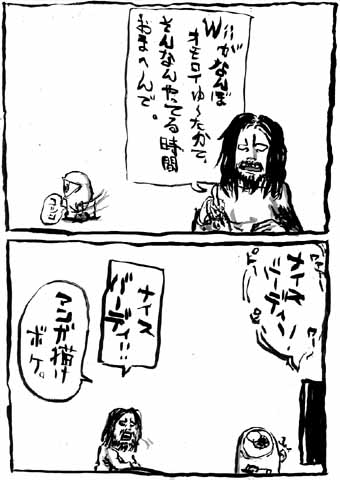 Wiiがなんぼ
オモロイゆ〜たかて、
そんなんやってる時間
おまへんで。
ナイス
バーディー
ナイス
バーディ…
マンガ描け
ボケ。